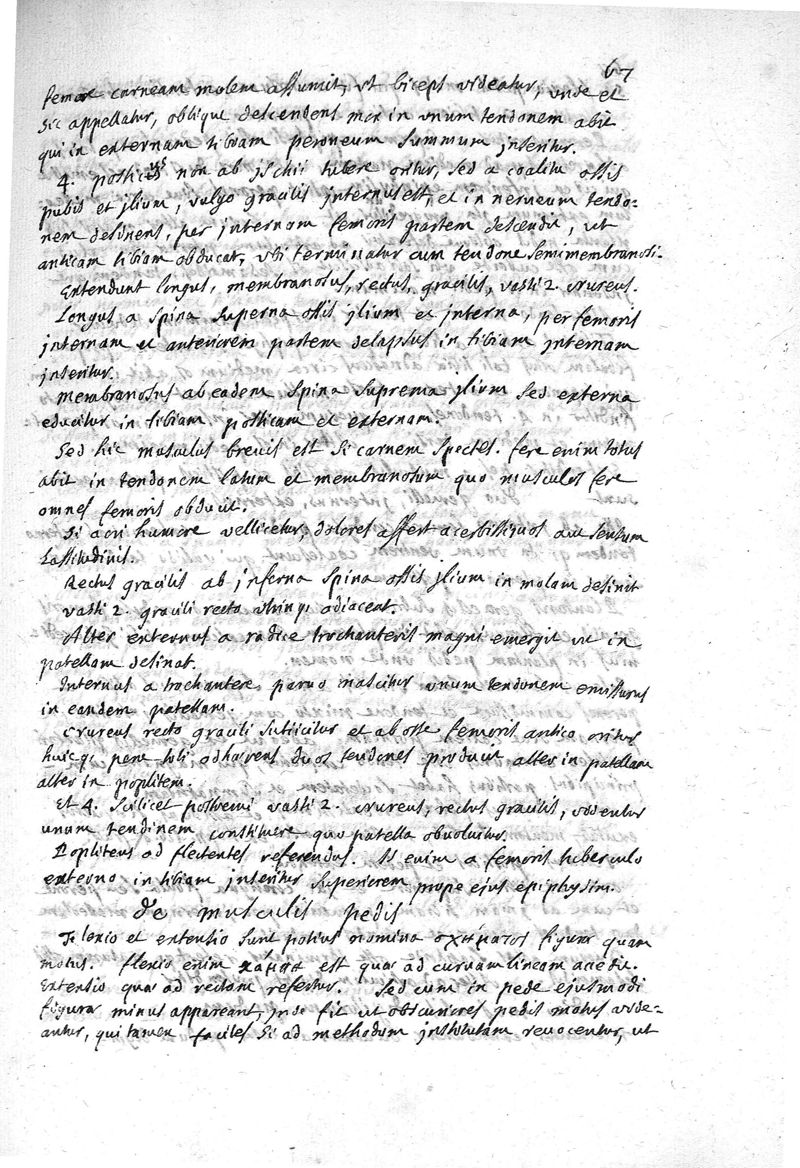 67
femore carneam molem assumit, ut biceps videatur, unde et
sic appellatur, oblique descendens mox in unum tendonem abit
qui in externam tibiam peroneum summum inseritur.
4. posticus non ab jschii tubere oritur, sed a coalitu ossis
pubis et jlium, vulgo gracilis internus est, et in nerueum tendo=
nem desinens, per internam femoris partem descendit, ut
anticam tibiam obducat, ubi terminatur cum tendone semimembranosi.
Extendunt longus, membranosus, rectus, gracilis, vasti 2. crureus.
Longus a spina superna ossis jlium et interna, per femoris
jnternam et anteriorem partem delapsus in tibiam jnternam
jnseritur.
Membranosus ab eadem spina suprema jlium sed externa
educitur in tibiam, posticam et externam.
Sed hic musculus brevis est si carnem spectes. fere enim totus
abit in tendonem latum et membranosum quo musculos fere
omnes femoris obduit.
Si acri humore vellicetur, dolores affert acerbissimos aut sensum
Lassitudinis.
Rectus gracilis ab jnferna spina ossis jlium in molam desinit
vasti 2. gracili recto utrinq; adiacent.
Alter externus a radice trochanteris magni emergit ut in
patellam desinat.
Internus a trochantere paruo nascitur unum tendonem emissurus
in eandem patellam.
Crureus recto gracili subiicitur et ab osse femoris antico oritur
huicq; pene toti adhaerens duos tendones producit alter in patellam
alter in poplitem.
Et 4. scilicet postremi vasti 2. crureus, rectus gracilis, videntur
unum tendinem constituere quo patella obvoluitur.
Popliteus ad flectentes referendus. Is enim a femoris tuberculo
externo in tibiam inseritur superiorem prope ejus epiphysim.
de musculis pedis
Flexio et extensio sunt potius nomina σχήματος figurae quam
motus. flexio enim est quae ad curvam lineam accedit.
Extensio quae ad rectam refertur. Sed cum in pede ejusmodi
figurae minus appareant, jnde fit ut obscuriores pedis motus vide=
antur, qui tamen faciles si ad methodum institutam revocentur, ut